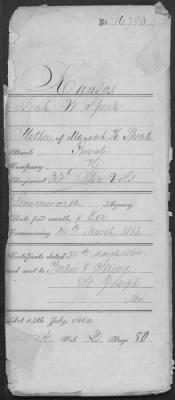 No. 16,793
Kansas
Leah W. Speak
Mother of H. Speak
Rank Private
Company "K"
Regiment 33d Vols
Leavenworth Agency.
Rate per month, $ 8.00
Commencing 14th March 1864
Certificate dated 24th March 1864
and sent to
St Joseph
Mo
Act 14th July, 1862.
Vol. 2 Page 80